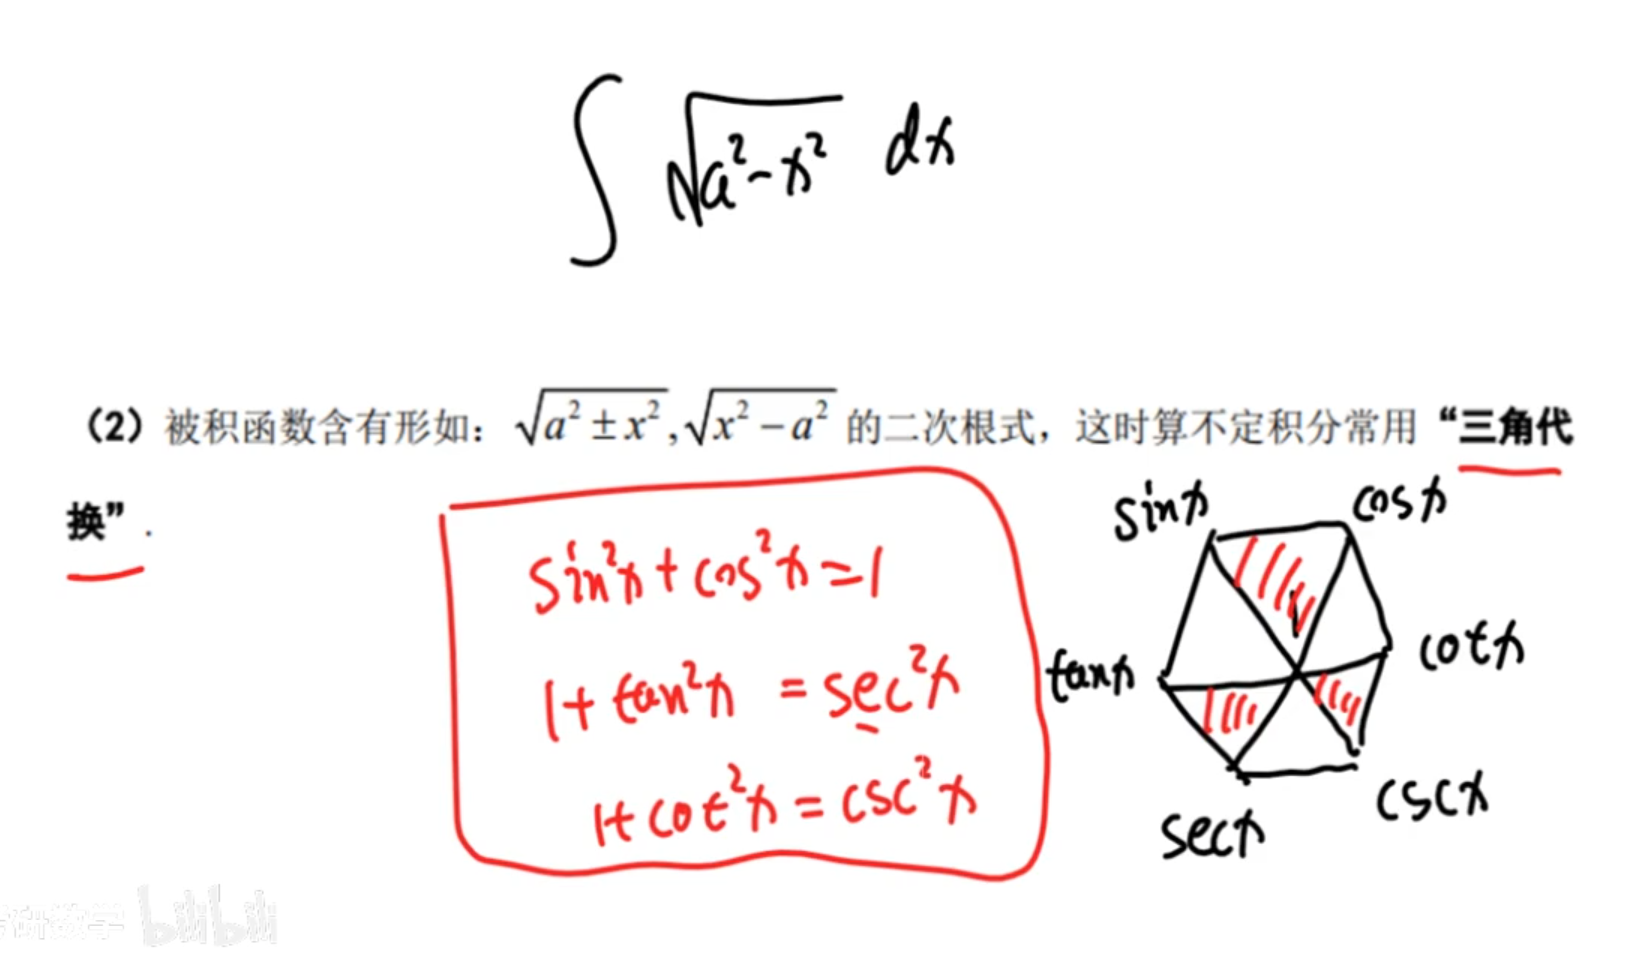 ∫ √(a²-x²) dx
（2）被积函数含有形如：√(a² ± x²), √(x² − a²) 的二次根式，这时算不定积分常用“三角代
换”.
sin²x + cos²x = 1
1 + tan²x = sec²x
1 + cot²x = csc²x
sinx cosx
1
tanx cotx
secx cscx
考研数学 bilibili